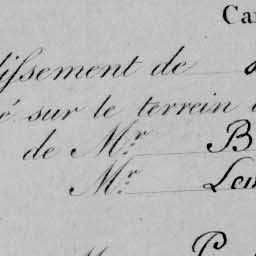 Ca
lissement de
é sur le terrein
de Mr B
Mr Len